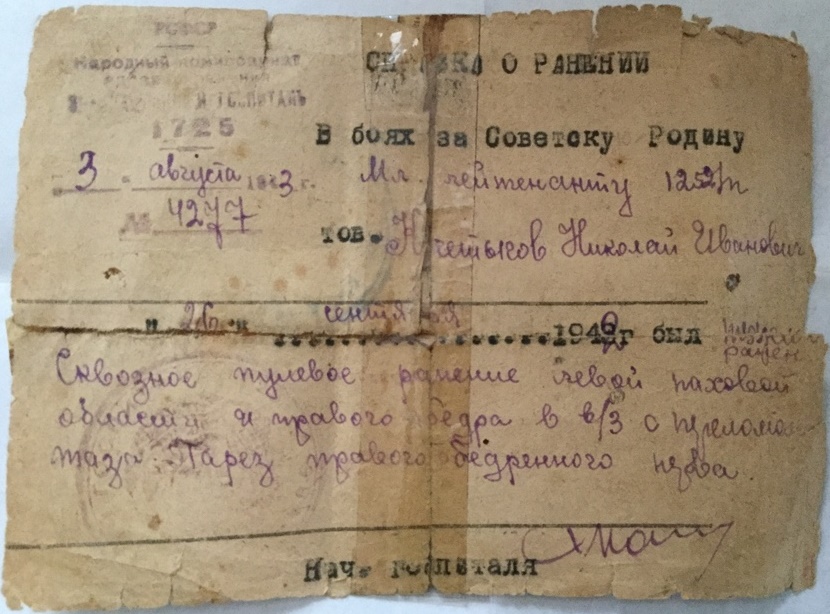 РСФСР
Народный комиссариат
И ГОСПИТАЛЬ
1725
3 августа 1943 г.
№ 4277
СПРАВКА О РАНЕНИИ
В боях за Советску Родину
Мл. лейтенанту
тов. Николай Иванович
" 26 " сентября 1942г был
ранен
Сквозное пулевое ранение левой паховой
области и правого бедра в в/3 с переломом
таза Парез правого бедренного нерва
Нач. госпиталя